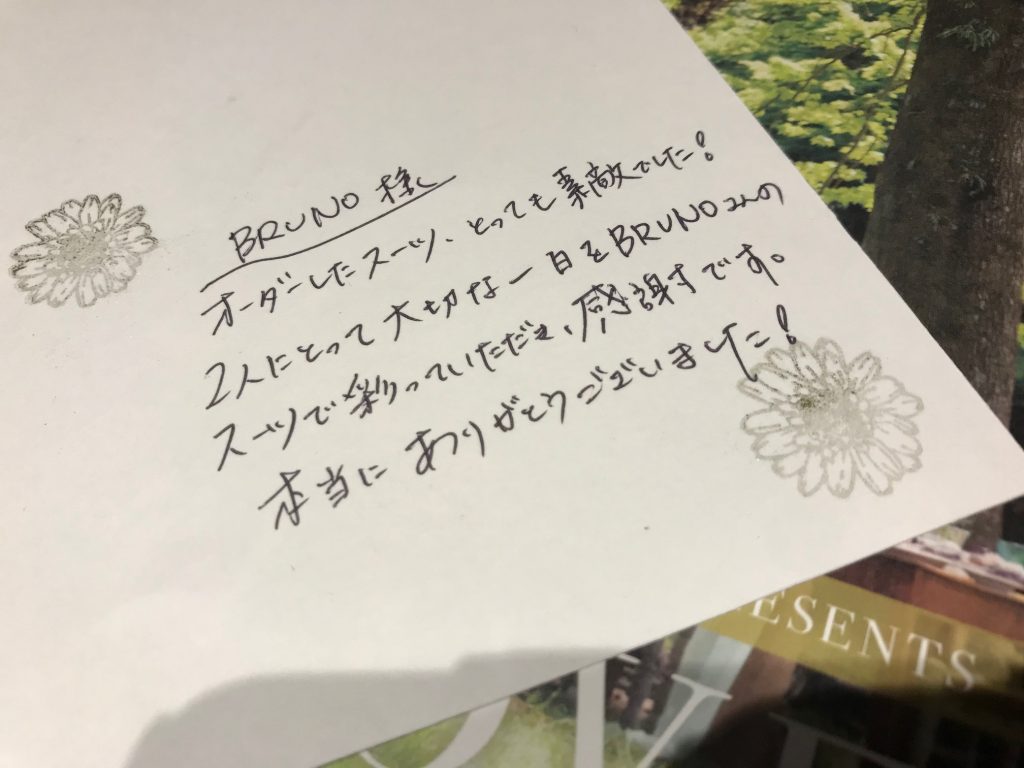 BRUNO 様
オーダーしたスーツ、とっても素敵でした!
2人にとって大切な一日をBRUNOさんの
スーツで彩っていただき、感謝です。
本当にありがとうございました!
ESENTS